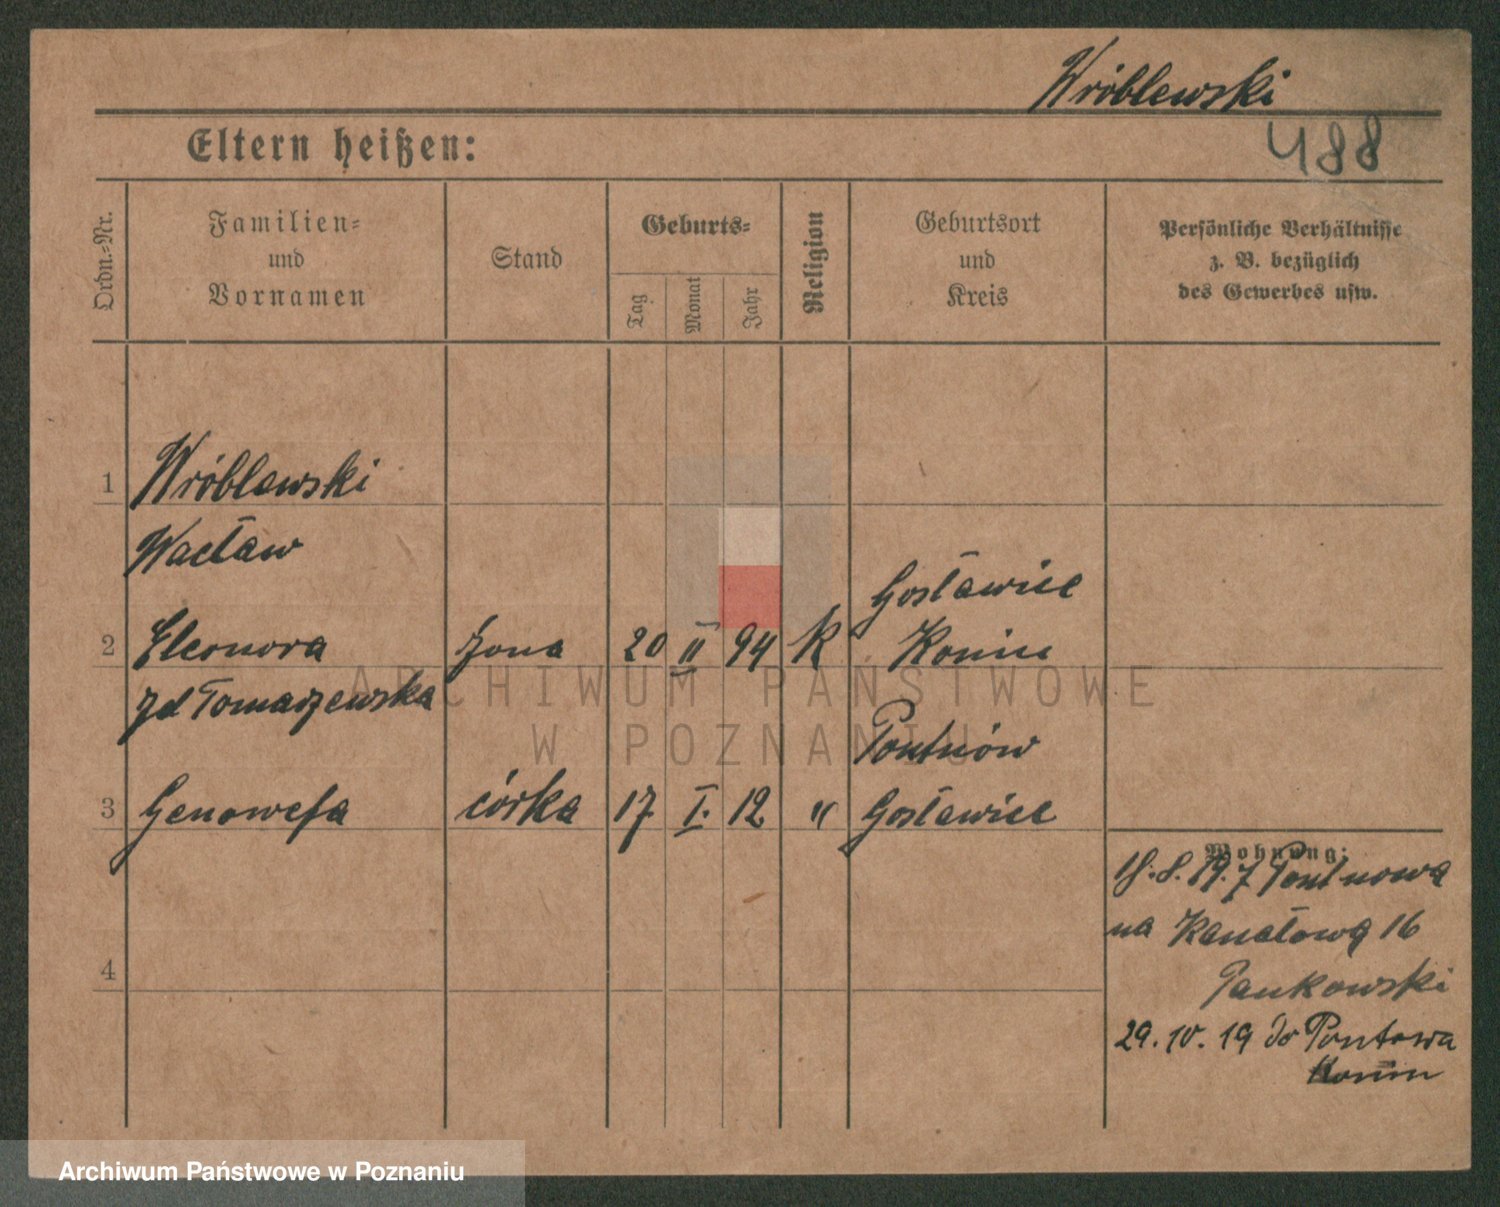 Wróblewski
Eltern heißen:
488
Ordn.-Nr.
Familien-
und
Vornamen
Stand
Geburts-
Tag
Monat
Jahr
Religion
Geburtsort
und
Kreis
Persönliche Verhältnisse
z. B. bezüglich
des Gewerbes usw.
1 Wróblewski
Wacław
Gosławice
2 Eleonora żona 20 II 94 K Konin
zd Tomaszewska
Pontnów
3 Genowefa córka 17. I. 12 " Gosławice
Wohnung:
18.8.19. z Pontnowa
na Kanałową 16
Pankowski
4
29.10.19 do Pontowa
Konin
ARCHIWUM PAŃSTWOWE
W POZNANIU
Archiwum Państwowe w Poznaniu